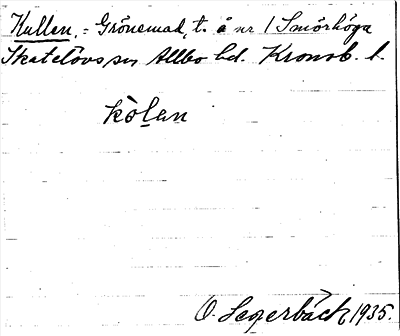 Kullen, = Grönemad, t. å nr 1 Smörhöga
Skatelövs sn Allbo hd. Kronob. l.
kòlan
O. Segerbäck 1935.